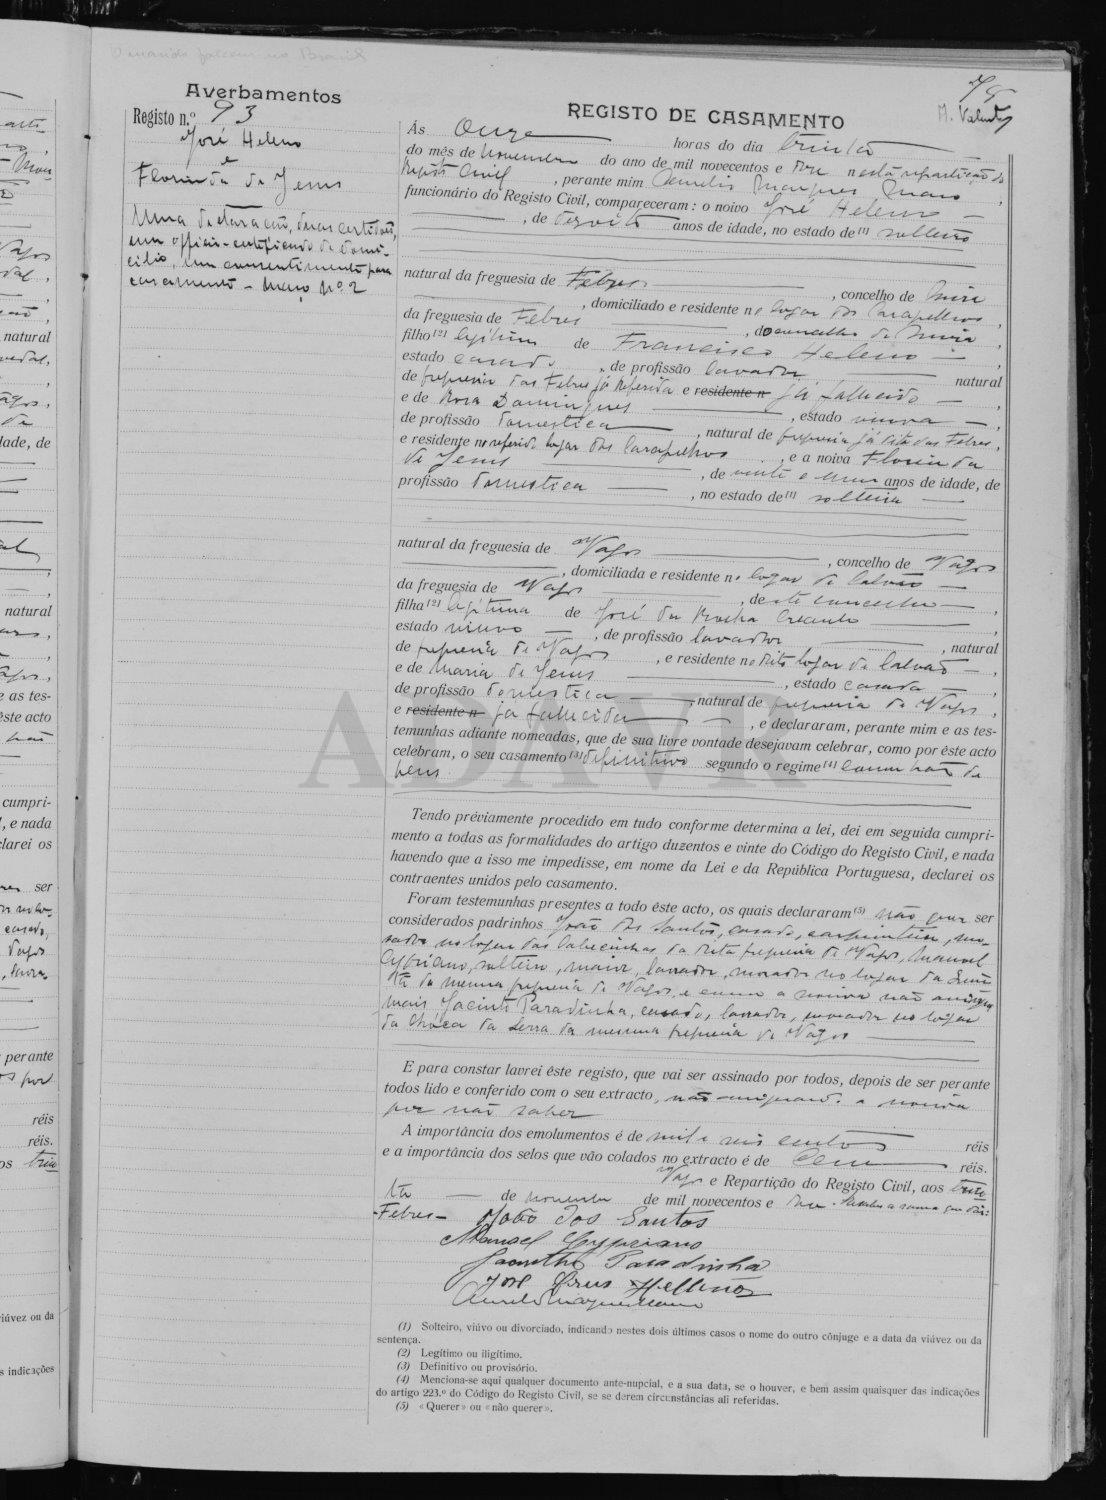 O marido faleceu no Brasil
75
M. Valente
Averbamentos
Registo n.º 93
José Heleno
e
Florinda de Jesus
Uma declaração, duas certidões,
um officio certificando do domi-
cilio, um consentimento para
casamento - Maço nº 2
REGISTO DE CASAMENTO
Ás Onze horas do dia trinta
do mês de Novembro do ano de mil novecentos e doze nesta repartição do
Registo Civil, perante mim Aurelio Marques Mano,
funcionário do Registo Civil, compareceram: o noivo José Heleno
, de dezoito anos de idade, no estado de (1) solteiro
natural da freguesia de Febres, concelho de Mira
, domiciliado e residente no logar dos Carapelhos,
da freguesia de Febres, do concelho de Mira,
filho (2) legitimo de Francisco Heleno,
estado casado, de profissão lavrador natural
de freguesia das Febres já referida e residente n já fallecido,
e de Rosa Domingues, estado viuva,
de profissão domestica, natural de freguesia já dita das Febres,
e residente no referido logar dos Carapelhos, e a noiva Florinda
de Jesus, de vinte e um anos de idade, de
profissão domestica, no estado de (1) solteira
natural da freguesia de Vagos, concelho de Vagos
, domiciliada e residente no logar de Calvão
da freguesia de Vagos, deste concelho,
filha (2) legitima de José da Rocha
estado viuvo, de profissão lavrador, natural
de freguesia de Vagos, e residente no dito logar de Calvão,
e de Maria de Jesus, estado casada,
de profissão domestica, natural de freguesia de Vagos,
e residente n já fallecida, e declararam, perante mim e as tes-
temunhas adiante nomeadas, que de sua livre vontade desejavam celebrar, como por êste acto
celebram, o seu casamento (3) definitivo segundo o regime (4) comunhão de
bens.
Tendo préviamente procedido em tudo conforme determina a lei, dei em seguida cumpri-
mento a todas as formalidades do artigo duzentos e vinte do Código do Registo Civil, e nada
havendo que a isso me impedisse, em nome da Lei e da República Portuguesa, declarei os
contraentes unidos pelo casamento.
Foram testemunhas presentes a todo êste acto, os quais declararam (5) não querer ser
considerados padrinhos João dos Santos, casado, carpinteiro, mo-
rador no logar das Cabecinhas da dita freguesia de Vagos, Manoel
Cypriano, solteiro, maior, lavrador, morador no logar da
da mesma freguesia de Vagos, e como a noiva não assigna
mais Jacinto Paradinha, casado, lavrador, morador no logar
da Chóca da Serra da mesma freguesia de Vagos
E para constar lavrei êste registo, que vai ser assinado por todos, depois de ser perante
todos lido e conferido com o seu extracto, não assignando a noiva
por não saber
A importância dos emolumentos é de mil e seis centos réis
e a importância dos selos que vão colados no extracto é de Cem réis.
Vagos e Repartição do Registo Civil, aos trin-
ta de novembro de mil novecentos e doze.
-Febres-
João dos Santos
Manoel Cypriano
Jacintho Paradinha
José Helleno
Aurelio Marques Mano
(1) Solteiro, viúvo ou divorciado, indicando nestes dois últimos casos o nome do outro cônjuge e a data da viúvez ou da
sentença.
(2) Legítimo ou ilígitimo.
(3) Definitivo ou provisório.
(4) Menciona-se aqui qualquer documento ante-nupcial, e a sua data, se o houver, e bem assim quaisquer das indicações
do artigo 223.º do Código do Registo Civil, se se derem circunstâncias ali referidas.
(5) «Querer» ou «não querer».
ADAVR